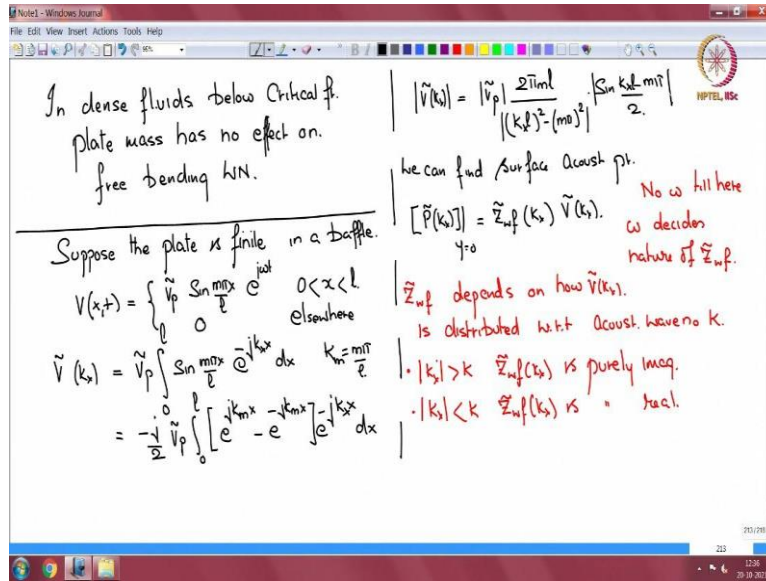 Note1 - Windows Journal
File Edit View Insert Actions Tools Help
NPTEL, IISc
In dense fluids below Critical fr.
plate mass has no effect on.
free bending WN.
Suppose the plate is finite in a baffle.
V(x,t) = { ṽ_p Sin mπx/l e^{jωt} 0<x<l
0 elsewhere
Ṽ(k_x) = ṽ_p ∫_0^l Sin mπx/l e^{-jk_x x} dx K_m = mπ/l
= -j/2 ṽ_p ∫_0^l [e^{jk_m x} - e^{-jk_m x}] e^{-jk_x x} dx
|Ṽ(k_x)| = |ṽ_p| 2πml / |(k_x l)² - (mπ)²| · |Sin k_x l - mπ / 2|
We can find surface Acoust pr.
[P̃(k_x)]_{y=0} = z̃_wf (k_x) Ṽ(k_x).
No ω till here
ω decides
nature of z̃_wf.
z̃_wf depends on how Ṽ(k_x).
is distributed w.r.t Acoust. wave no K.
· |k_x|>k z̃_wf(k_x) is purely imag.
· |k_x|<k z̃_wf(k_x) is " real.
213/218
213
12:36
20-10-202